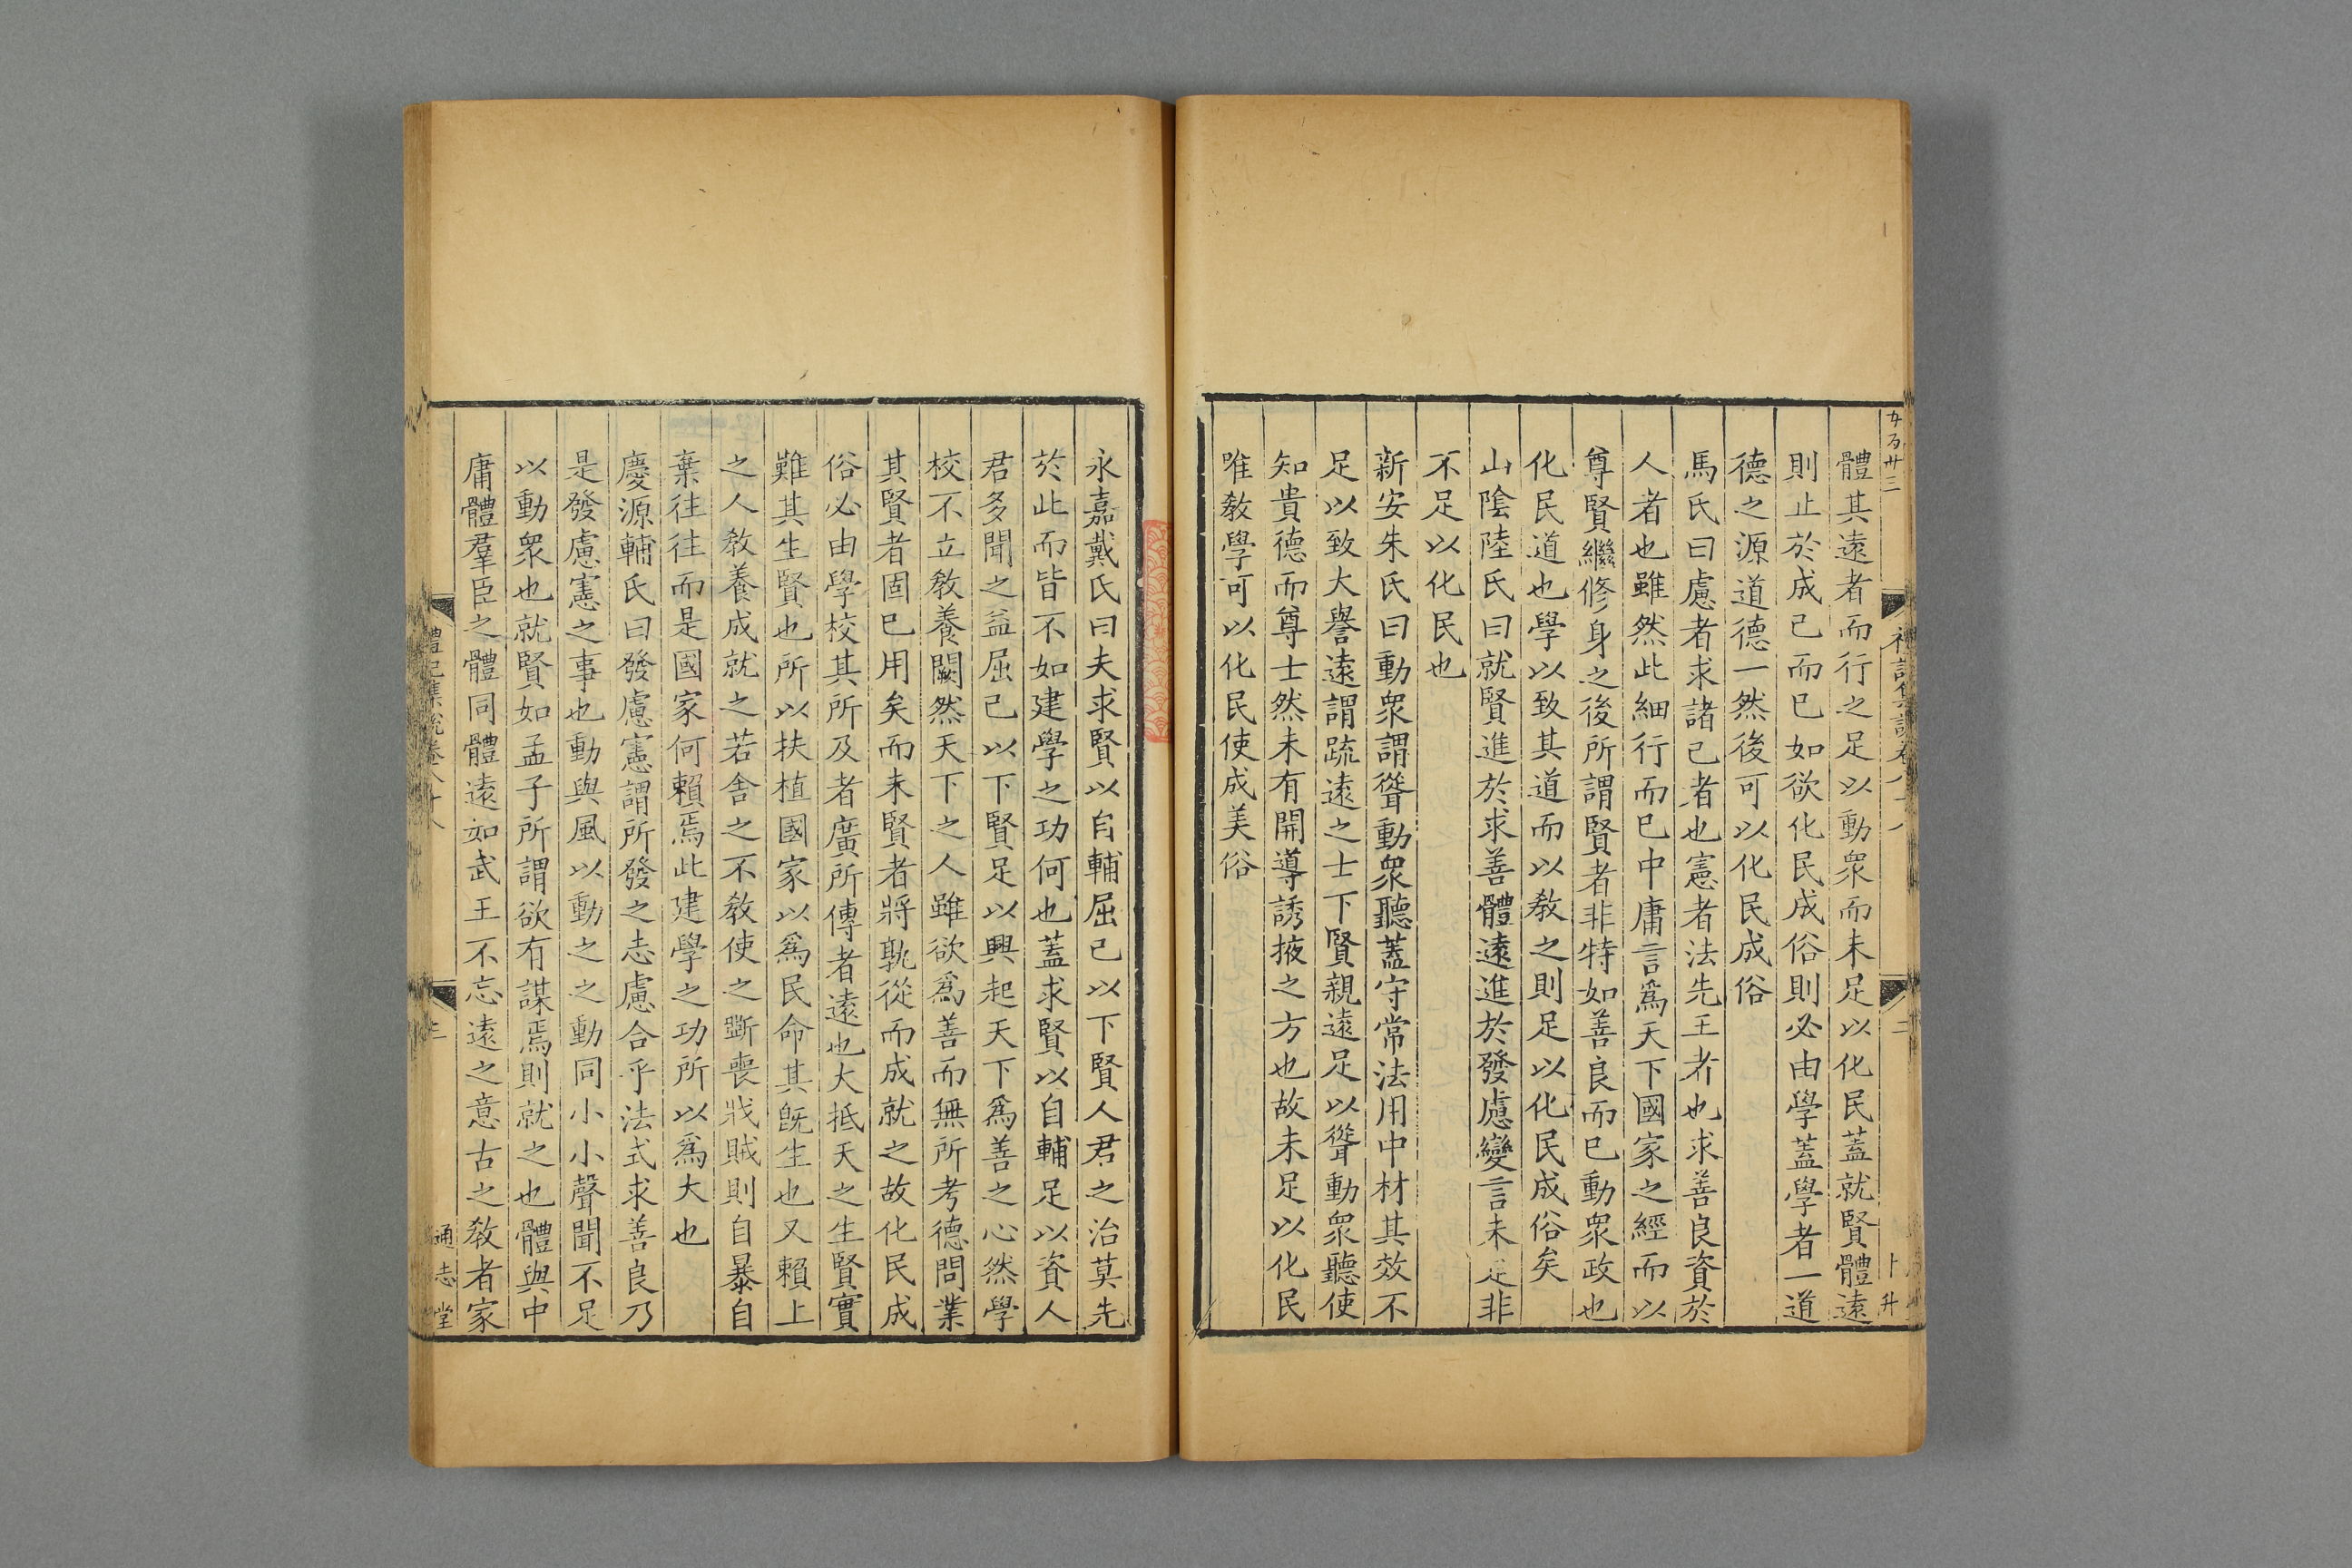 體其遠者而行之足以動衆而未足以化民蓋就賢體遠
則止於成己而已如欲化民成俗則必由學蓋學者一道
德之源道德一然後可以化民成俗
馬氏曰慮者求諸己者也憲者法先王者也求善良資於
人者也雖然此細行而已中庸言爲天下國家之經而以
尊賢繼修身之後所謂賢者非特如善良而已動衆政也
化民道也學以致其道而以敎之則足以化民成俗矣
山陰陸氏曰就賢進於求善體遠進於發慮變言未足非
不足以化民也
新安朱氏曰動衆謂聳動衆聽蓋守常法用中材其效不
足以致大譽遠謂疏遠之士下賢親遠足以聳動衆聽使
知貴德而尊士然未有開導誘掖之方也故未足以化民
唯敎學可以化民使成美俗
永嘉戴氏曰夫求賢以自輔屈己以下賢人君之治莫先
於此而皆不如建學之功何也蓋求賢以自輔足以資人
君多聞之益屈己以下賢足以興起天下爲善之心然學
校不立敎養闕然天下之人雖欲爲善而無所考德問業
其賢者固已用矣而未賢者將孰從而成就之故化民成
俗必由學校其所及者廣所傳者遠也大抵天之生賢實
難其生賢也所以扶植國家以爲民命其旣生也又賴上
之人敎養成就之若舍之不敎使之斵喪戕賊則自暴自
棄往往而是國家何賴焉此建學之功所以爲大也
慶源輔氏曰發慮憲謂所發之志慮合乎法式求善良乃
是發慮憲之事也動與風以動之之動同小小聲聞不足
以動衆也就賢如孟子所謂欲有謀焉則就之也體與中
庸體羣臣之體同體遠如武王不忘遠之意古之敎者家
禮記集說卷八十八
通志堂